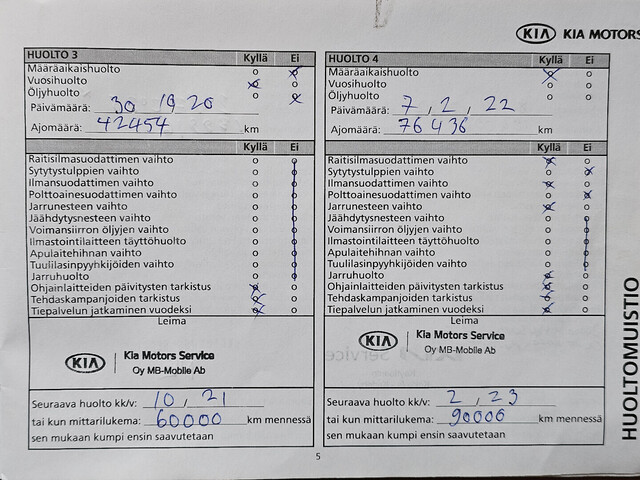 KIA KIA MOTORS
HUOLTO 3 Kyllä Ei
Määräaikaishuolto
Vuosihuolto
Öljyhuolto
Päivämäärä: 30 19 20
Ajomäärä: 42454 km
Kyllä Ei
Raitisilmasuodattimen vaihto
Sytytystulppien vaihto
Ilmansuodattimen vaihto
Polttoainesuodattimen vaihto
Jarrunesteen vaihto
Jäähdytysnesteen vaihto
Voimansiirron öljyjen vaihto
Ilmastointilaitteen täyttöhuolto
Apulaitehihnan vaihto
Tuulilasinpyyhkijöiden vaihto
Jarruhuolto
Ohjainlaitteiden päivitysten tarkistus
Tehdaskampanjoiden tarkistus
Tiepalvelun jatkaminen vuodeksi
Leima
KIA Kia Motors Service
Oy MB-Mobile Ab
Seuraava huolto kk/v: 10, 21
tai kun mittarilukema: 60000 km mennessä
sen mukaan kumpi ensin saavutetaan
HUOLTO 4 Kyllä Ei
Määräaikaishuolto
Vuosihuolto
Öljyhuolto
Päivämäärä: 7, 2, 22
Ajomäärä: 76436 km
Kyllä Ei
Raitisilmasuodattimen vaihto
Sytytystulppien vaihto
Ilmansuodattimen vaihto
Polttoainesuodattimen vaihto
Jarrunesteen vaihto
Jäähdytysnesteen vaihto
Voimansiirron öljyjen vaihto
Ilmastointilaitteen täyttöhuolto
Apulaitehihnan vaihto
Tuulilasinpyyhkijöiden vaihto
Jarruhuolto
Ohjainlaitteiden päivitysten tarkistus
Tehdaskampanjoiden tarkistus
Tiepalvelun jatkaminen vuodeksi
Leima
KIA Kia Motors Service
Oy MB-Mobile Ab
Seuraava huolto kk/v: 2, 23
tai kun mittarilukema: 90000 km mennessä
sen mukaan kumpi ensin saavutetaan
HUOLTOMUISTIO
5